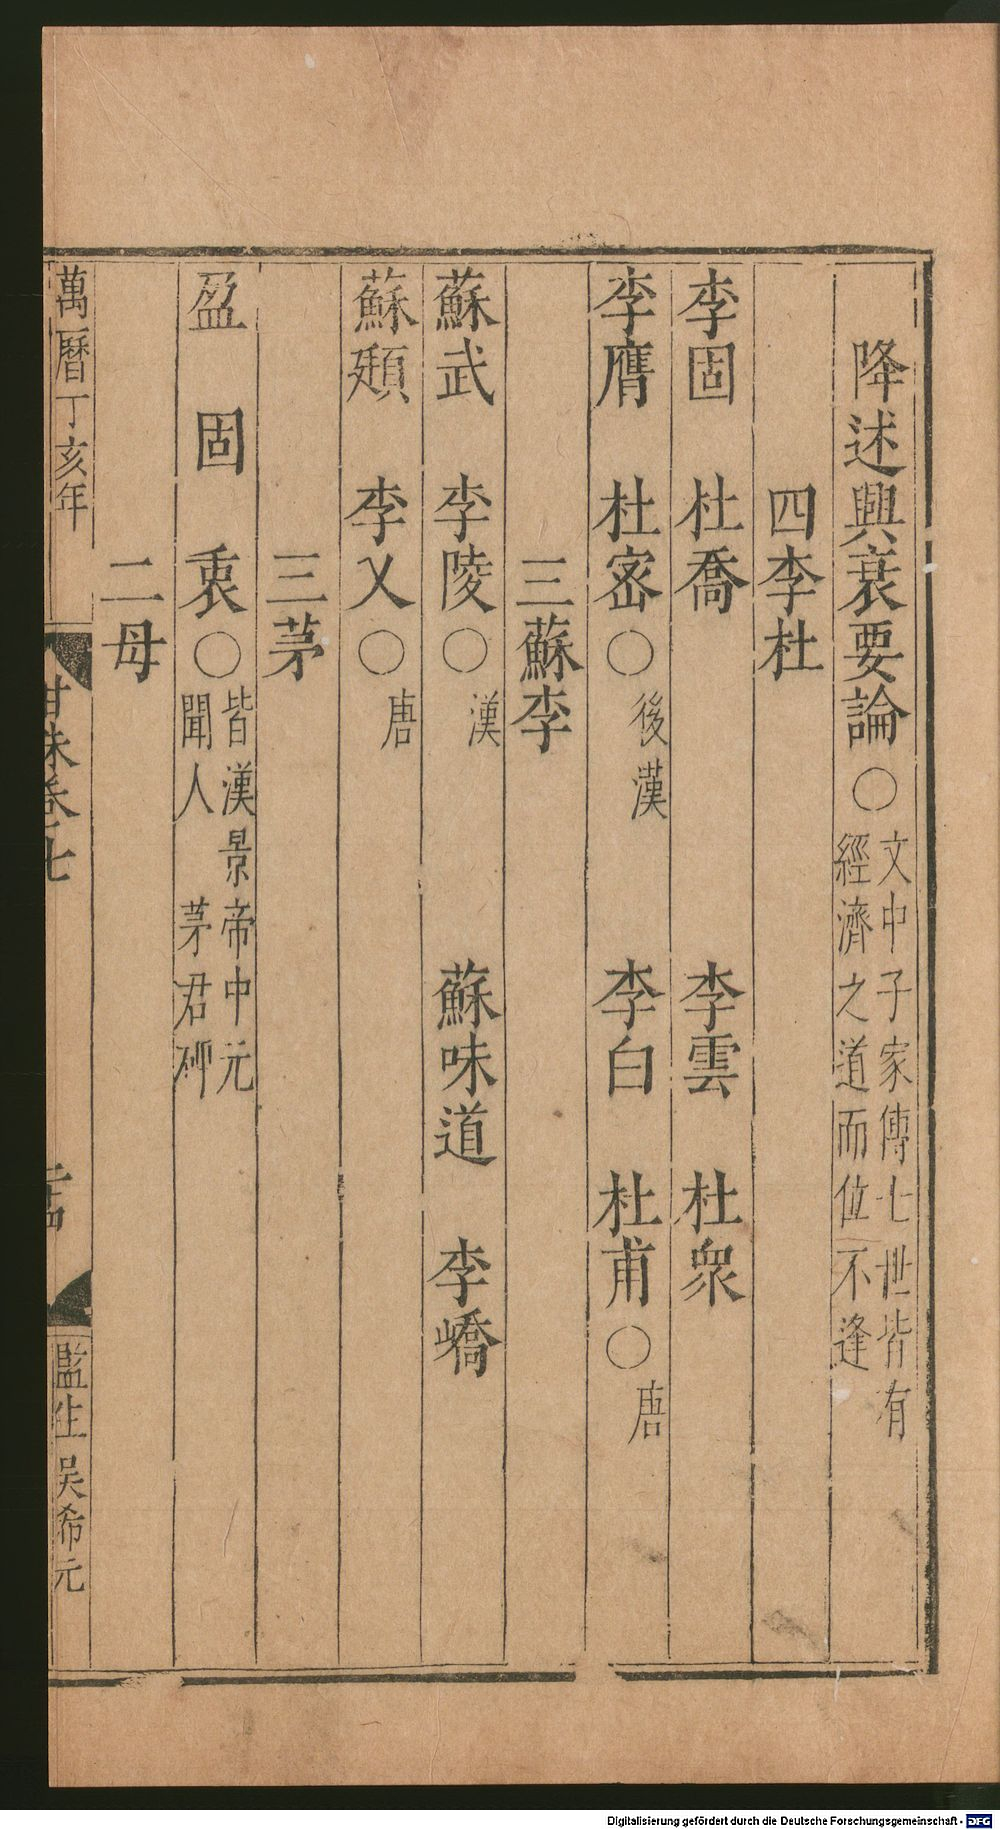 降述興衰要論○文中子家傳七世皆有經濟之道而位不逢
四李杜
李固 杜喬 李雲 杜衆
李膺 杜宻○後漢 李白 杜甫○唐
三蘇李
蘇武 李陵○漢 蘇味道 李嶠
蘇頲 李乂○唐
三茅
盈 固 衷○皆漢景帝中元聞人 茅君碑
二母
萬曆丁亥年
卷七
監生吴希元
Digitalisierung gefördert durch die Deutsche Forschungsgemeinschaft - DFG